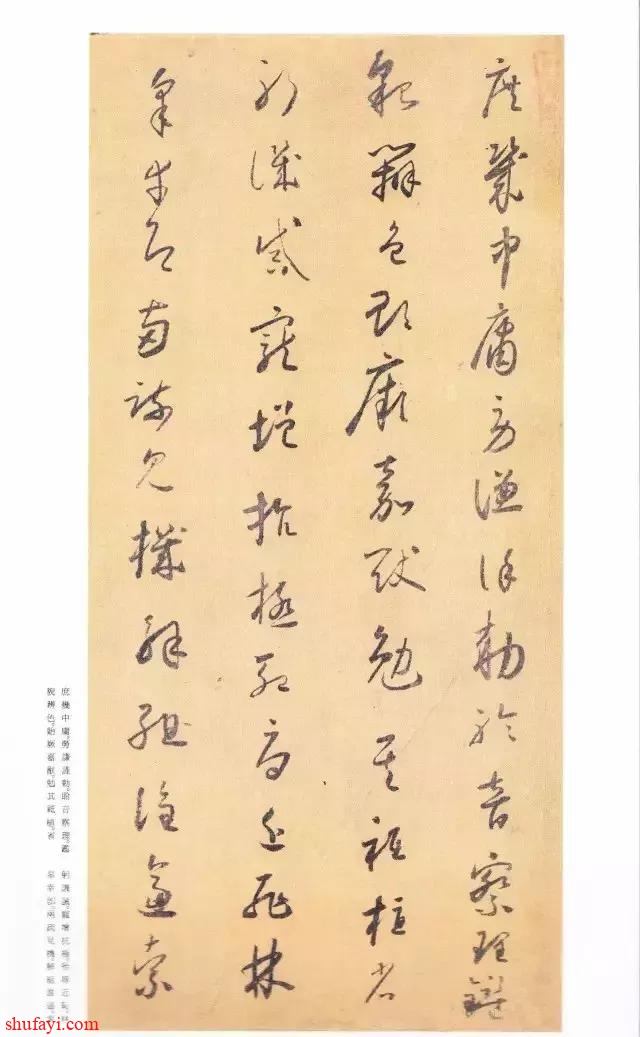 庶幾中庸勞謙謹勑聆音察理鑑
貌辯色貽厥嘉猷勉其祗植省
躬譏誡寵增抗極殆辱近恥林
皋幸即兩疏見機解組誰逼索
庶機中庸。勞謙謹勑。聆音察理。鑑
貌辨色。貽厥嘉猷。勉其祗植。省
躬譏誡。寵增抗極。殆辱近恥。林
皋幸即。兩疏見機。解組誰逼。索
shufayi.com